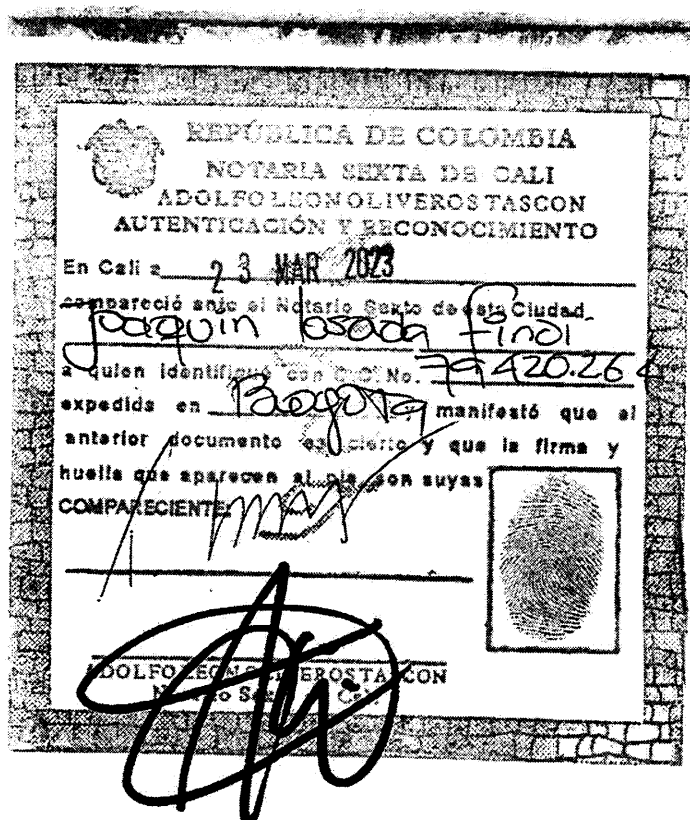 REPÚBLICA DE COLOMBIA
NOTARIA SEXTA DE CALI
ADOLFO LEON OLIVEROS TASCON
AUTENTICACIÓN Y RECONOCIMIENTO
En Cali a 23 MAR 2023
compareció ante el Notario Sexto de esta Ciudad
Joaquin losada finol
a quien identifiqué con C.C. No. 79.420.264
expedida en Bogota manifestó que el
anterior documento es cierto y que la firma y
huella que aparecen al pie son suyas
COMPARECIENTE:
ADOLFO LEON OLIVEROS TASCON
Notario Sexto Cali